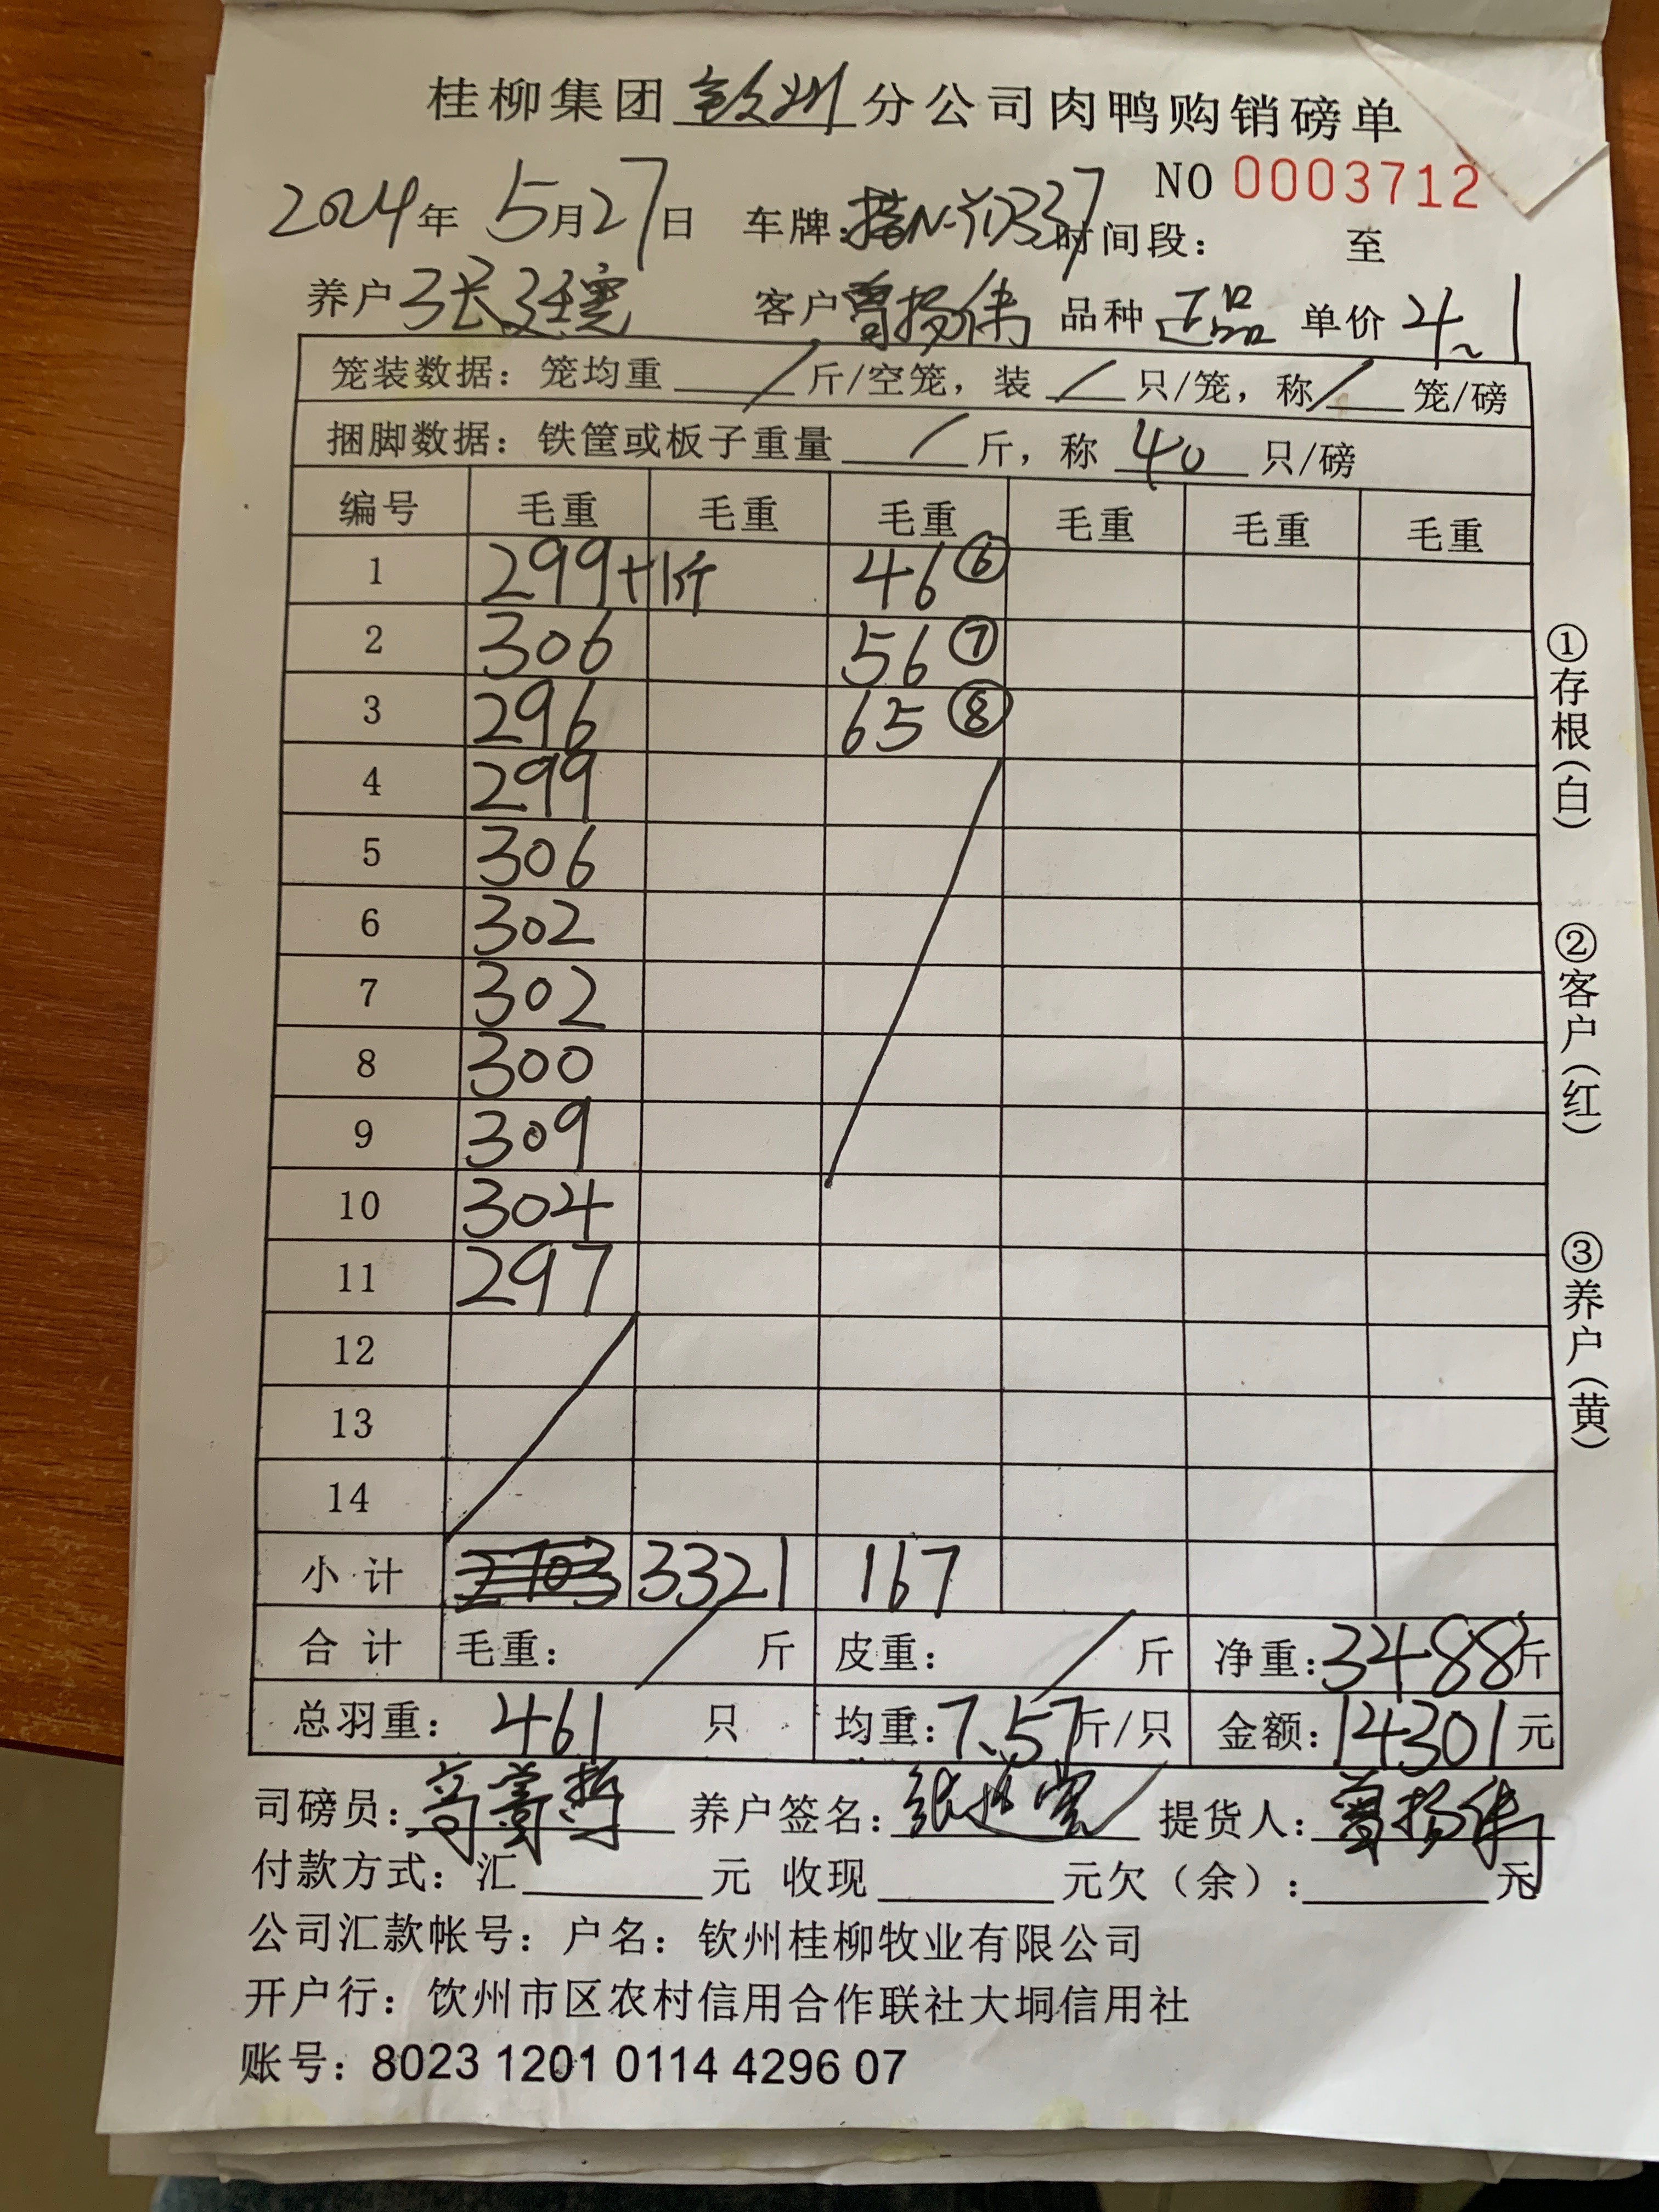 桂柳集团钦州分公司肉鸭购销磅单
NO 0003712
2024年 5月27日 车牌: 时间段: 至
养户 张廷宽 客户 曾扬伟 品种 正品 单价 4.1
笼装数据: 笼均重 / 斤/空笼, 装 / 只/笼, 称 / 笼/磅
捆脚数据: 铁筐或板子重量 / 斤, 称 40 只/磅
编号 毛重 毛重 毛重 毛重 毛重 毛重
1 299+1斤 46 ⑥
2 306 56 ⑦
3 296 65 ⑧
4 299
5 306
6 302
7 302
8 300
9 309
10 304
11 297
12
13
14
小计 3321 167
合计 毛重: / 斤 皮重: / 斤 净重: 3488斤
总羽重: 461 只 均重: 7.57斤/只 金额: 14301元
司磅员: 养户签名: 张廷宽 提货人: 曾扬伟
付款方式: 汇 元 收现 元欠(余): 元
公司汇款帐号: 户名: 钦州桂柳牧业有限公司
开户行: 饮州市区农村信用合作联社大垌信用社
账号: 8023 1201 0114 4296 07
①存根(白)
②客户(红)
③养户(黄)